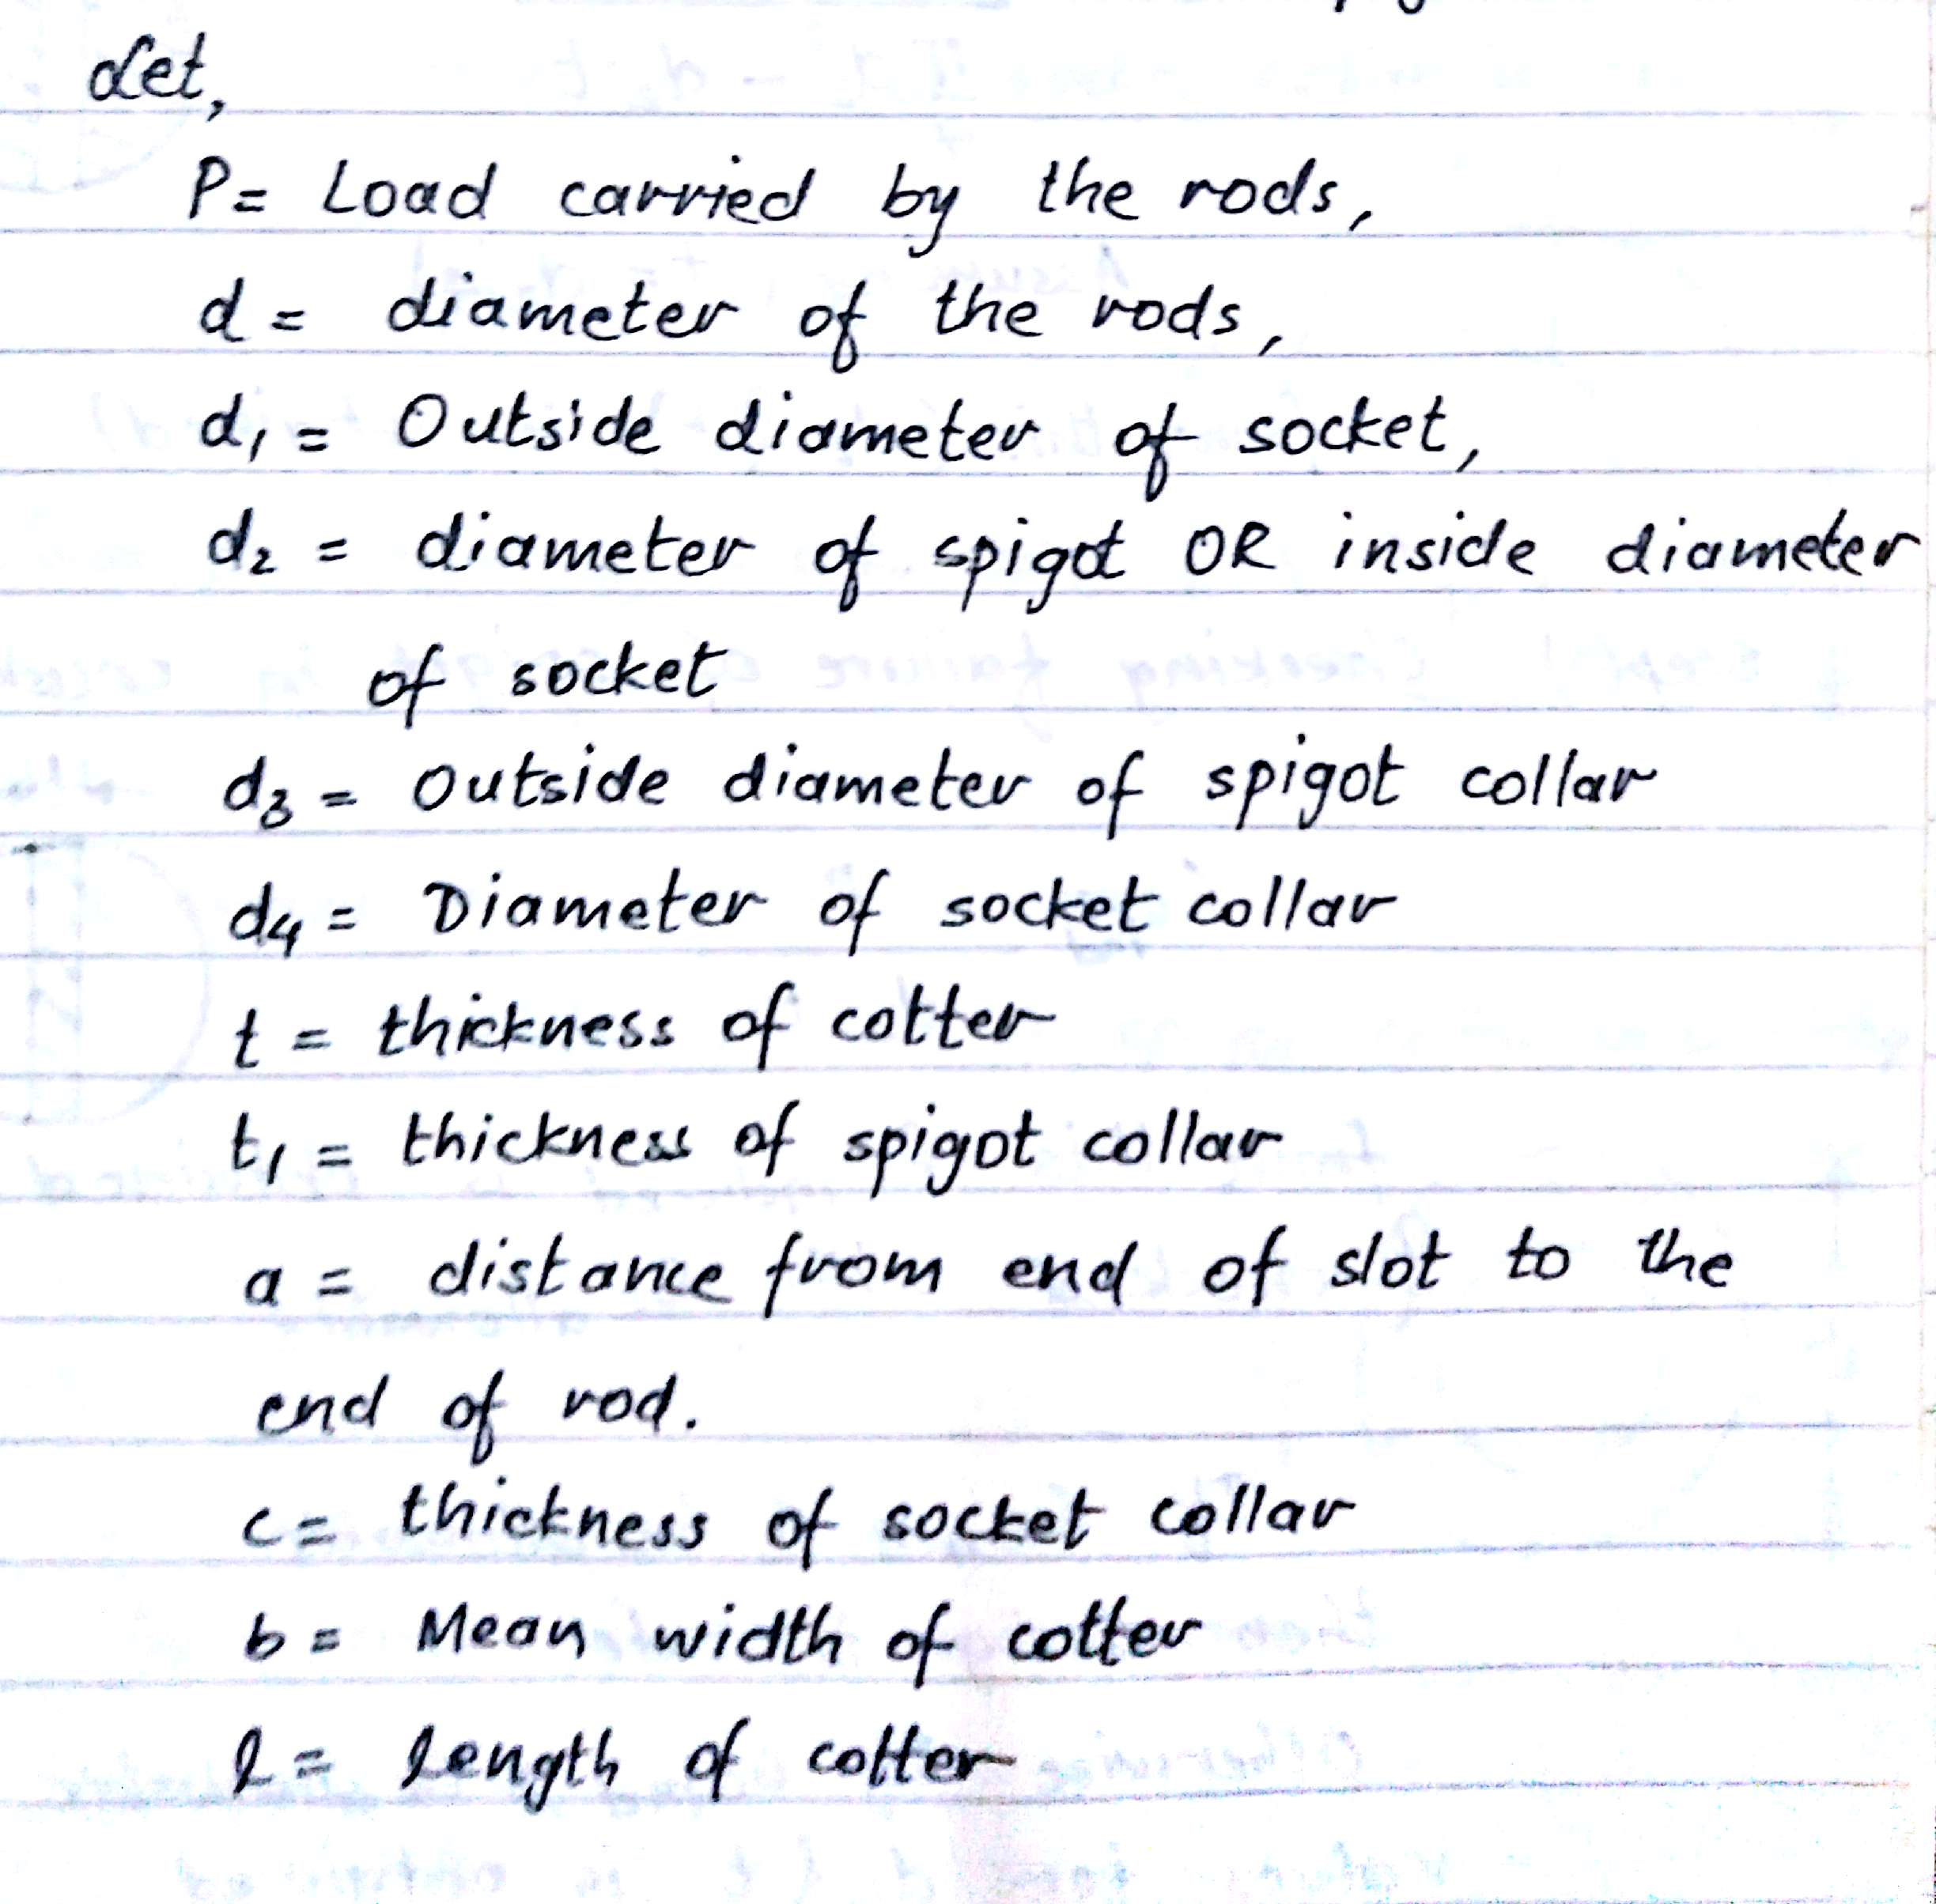 Let,
P= Load carried by the rods,
d = diameter of the rods,
d₁ = Outside diameter of socket,
d₂ = diameter of spigot OR inside diameter
of socket
d₃ = Outside diameter of spigot collar
d₄ = Diameter of socket collar
t = thickness of cotter
t₁ = thickness of spigot collar
a = distance from end of slot to the
end of rod.
c = thickness of socket collar
b = Mean width of cotter
l = length of cotter